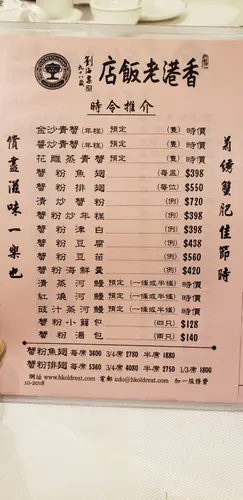 香港老飯店
劉海粟
九十八歲
時令推介
菊綉蟹肥佳節時
償盡滋味一樂也
金沙青蟹(年糕) 預定 (隻) 時價
醬炒青蟹(年糕) 預定 (隻) 時價
花雕蒸青蟹 預定 (隻) 時價
蟹粉魚翅 (每盅) $398
蟹粉排翅 (每位) $550
清炒蟹粉 (例) $720
蟹粉炒年糕 (例) $398
蟹粉津白 (例) $398
蟹粉豆腐 (例) $438
蟹粉豆苗 (例) $560
蟹粉海鮮羹 (例) $420
清蒸河鰻 預定 (一條或半條) 時價
紅燒河鰻 預定 (一條或半條) 時價
豉汁蒸河鰻 預定 (一條或半條) 時價
蟹粉小籠包 (四只) $128
蟹粉湯包 (兩只) $140
蟹粉魚翅 每席 3600 3/4席 2780 半席 1880
蟹粉排翅 每席 5360 3/4席 4080 半席 2750 1/3席 1800
網址 www.hkoldrest.com 電郵 info@hkoldrest.com 加一服務費
10-2018